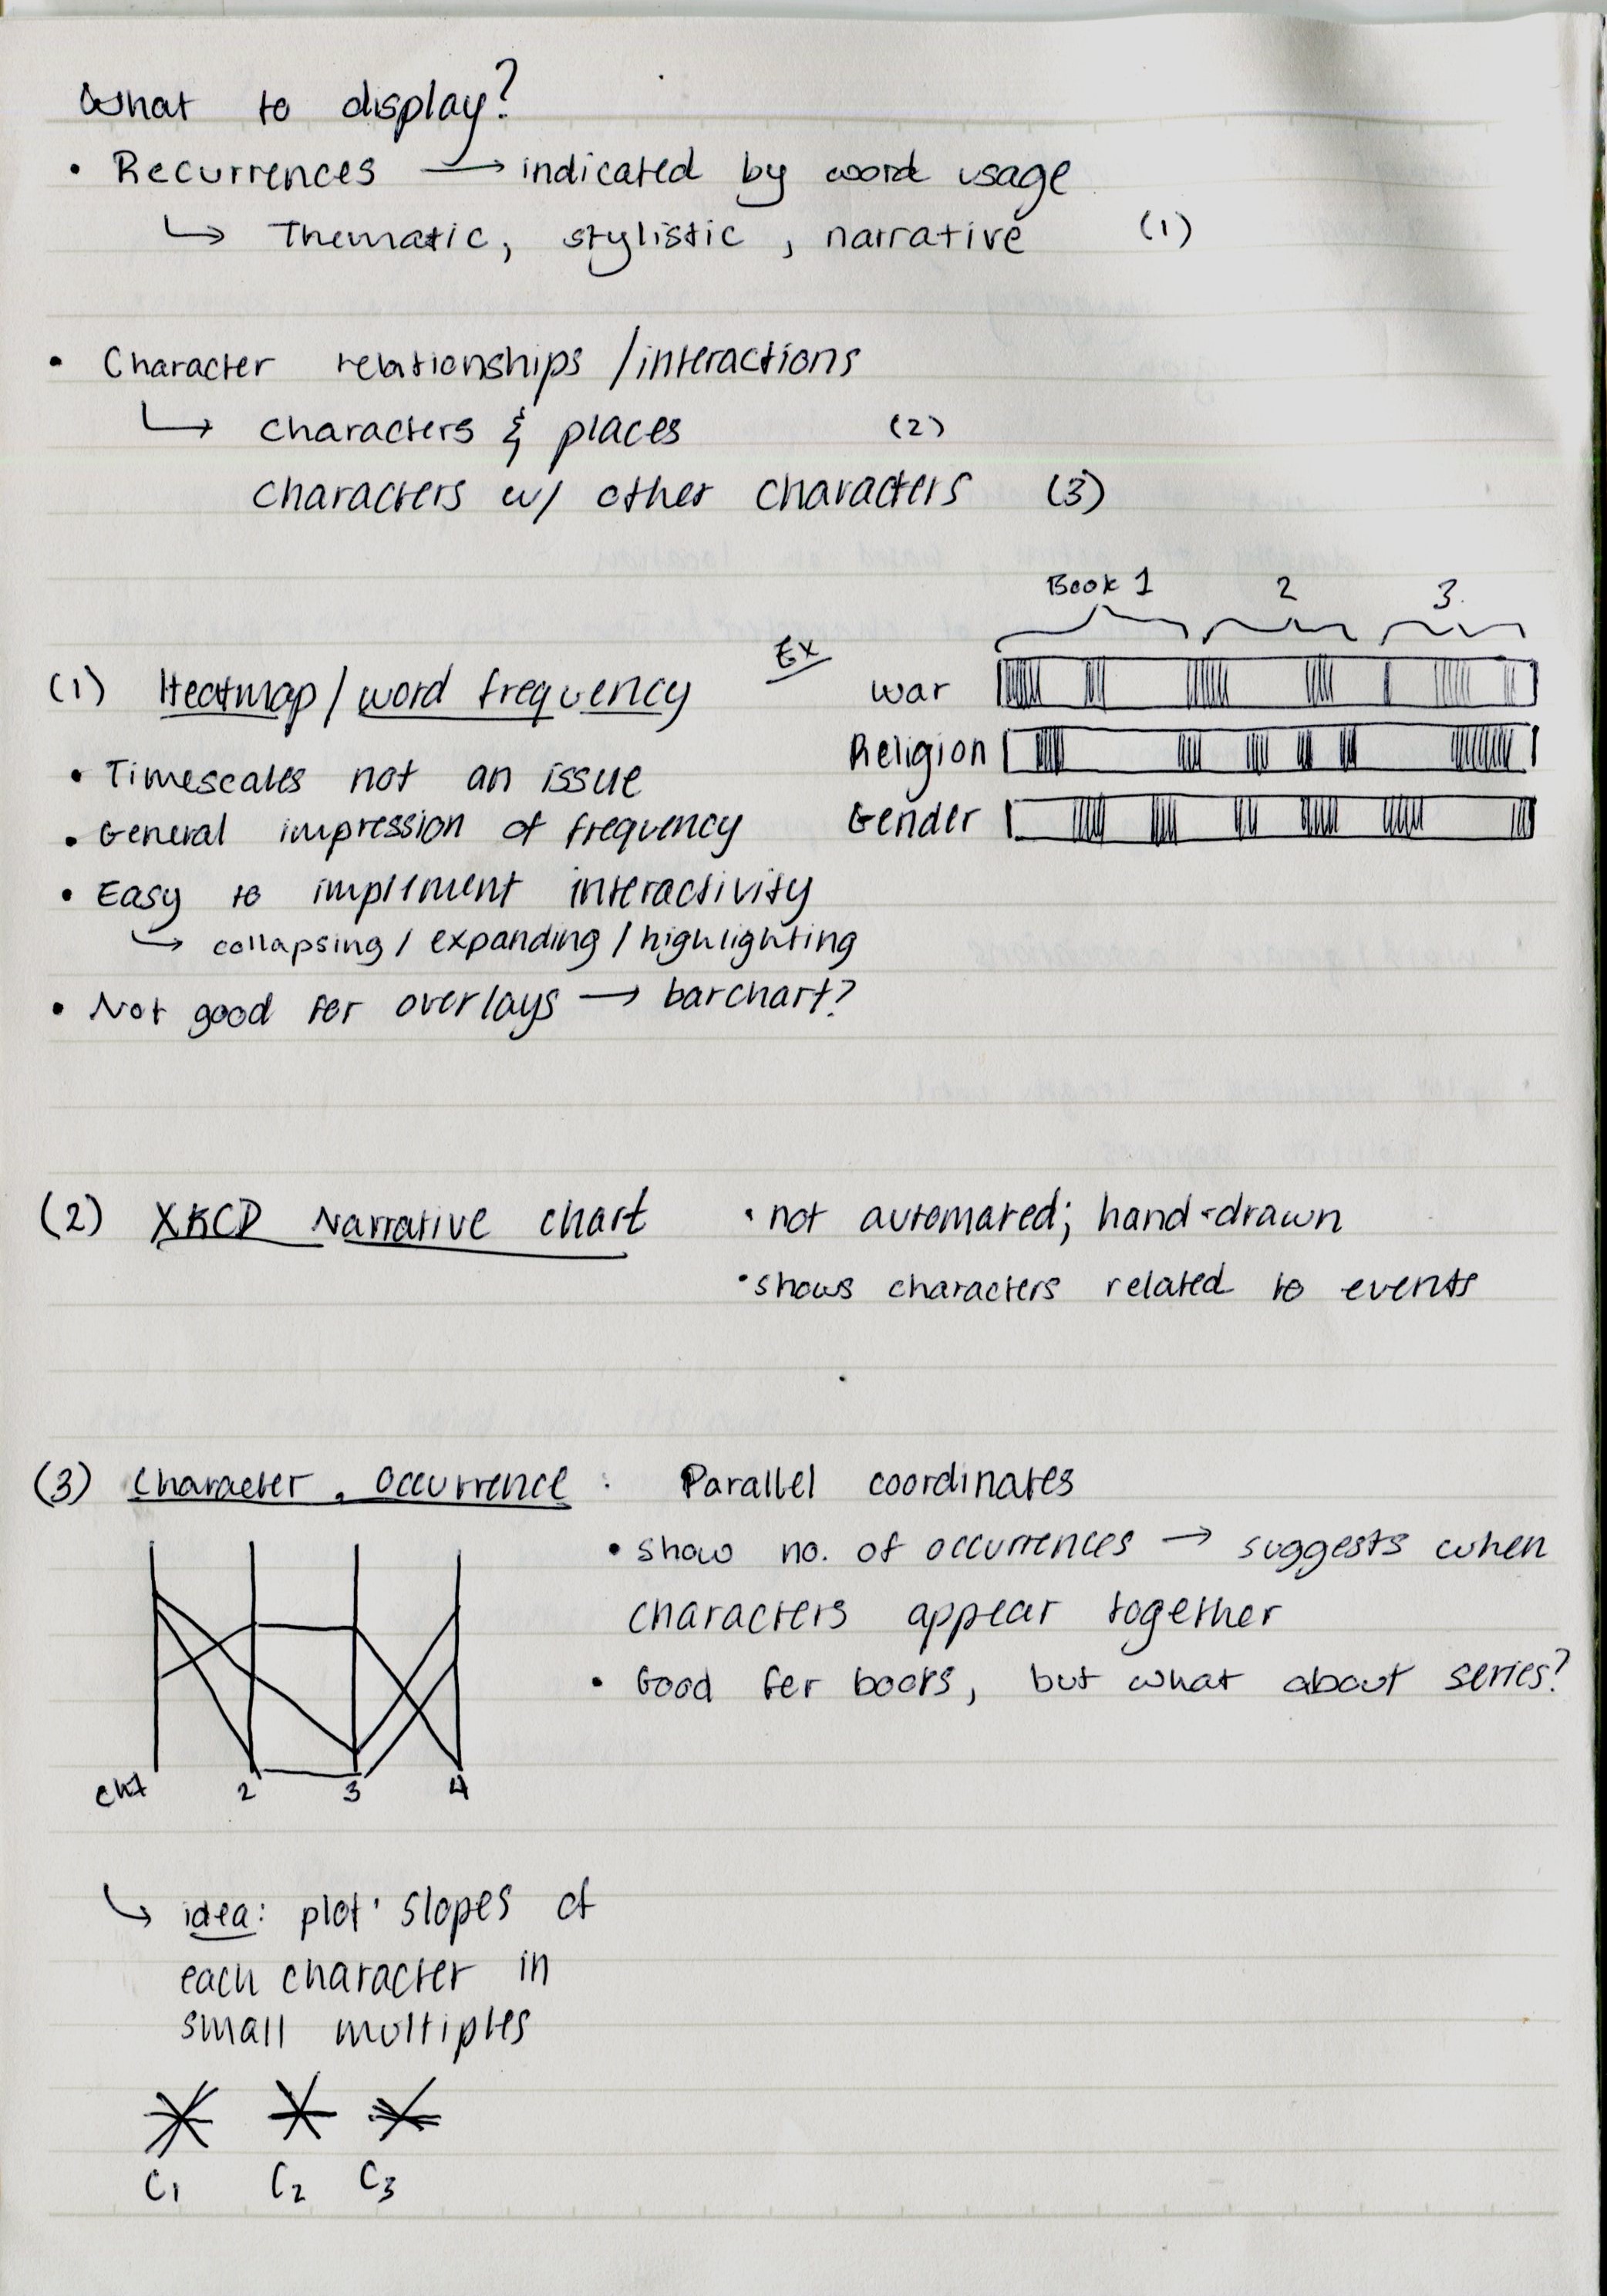 What to display?
• Recurrences → indicated by word usage
↳ Thematic, stylistic, narrative (1)
• Character relationships / interactions
↳ characters & places (2)
characters w/ other characters (3)
Book 1 2 3
(1) Heatmap / word frequency Ex war
Religion
• Timescales not an issue
Gender
• General impression of frequency
• Easy to implement interactivity
↳ collapsing / expanding / highlighting
• Not good for overlays → barchart?
(2) XKCD Narrative chart • not automated; hand-drawn
• shows characters related to events
(3) Character Occurrence : Parallel coordinates
• show no. of occurrences → suggests when
characters appear together
• Good for books, but what about series?
ch1 2 3 4
↳ idea: plot slopes of
each character in
small multiples
C1 C2 C3